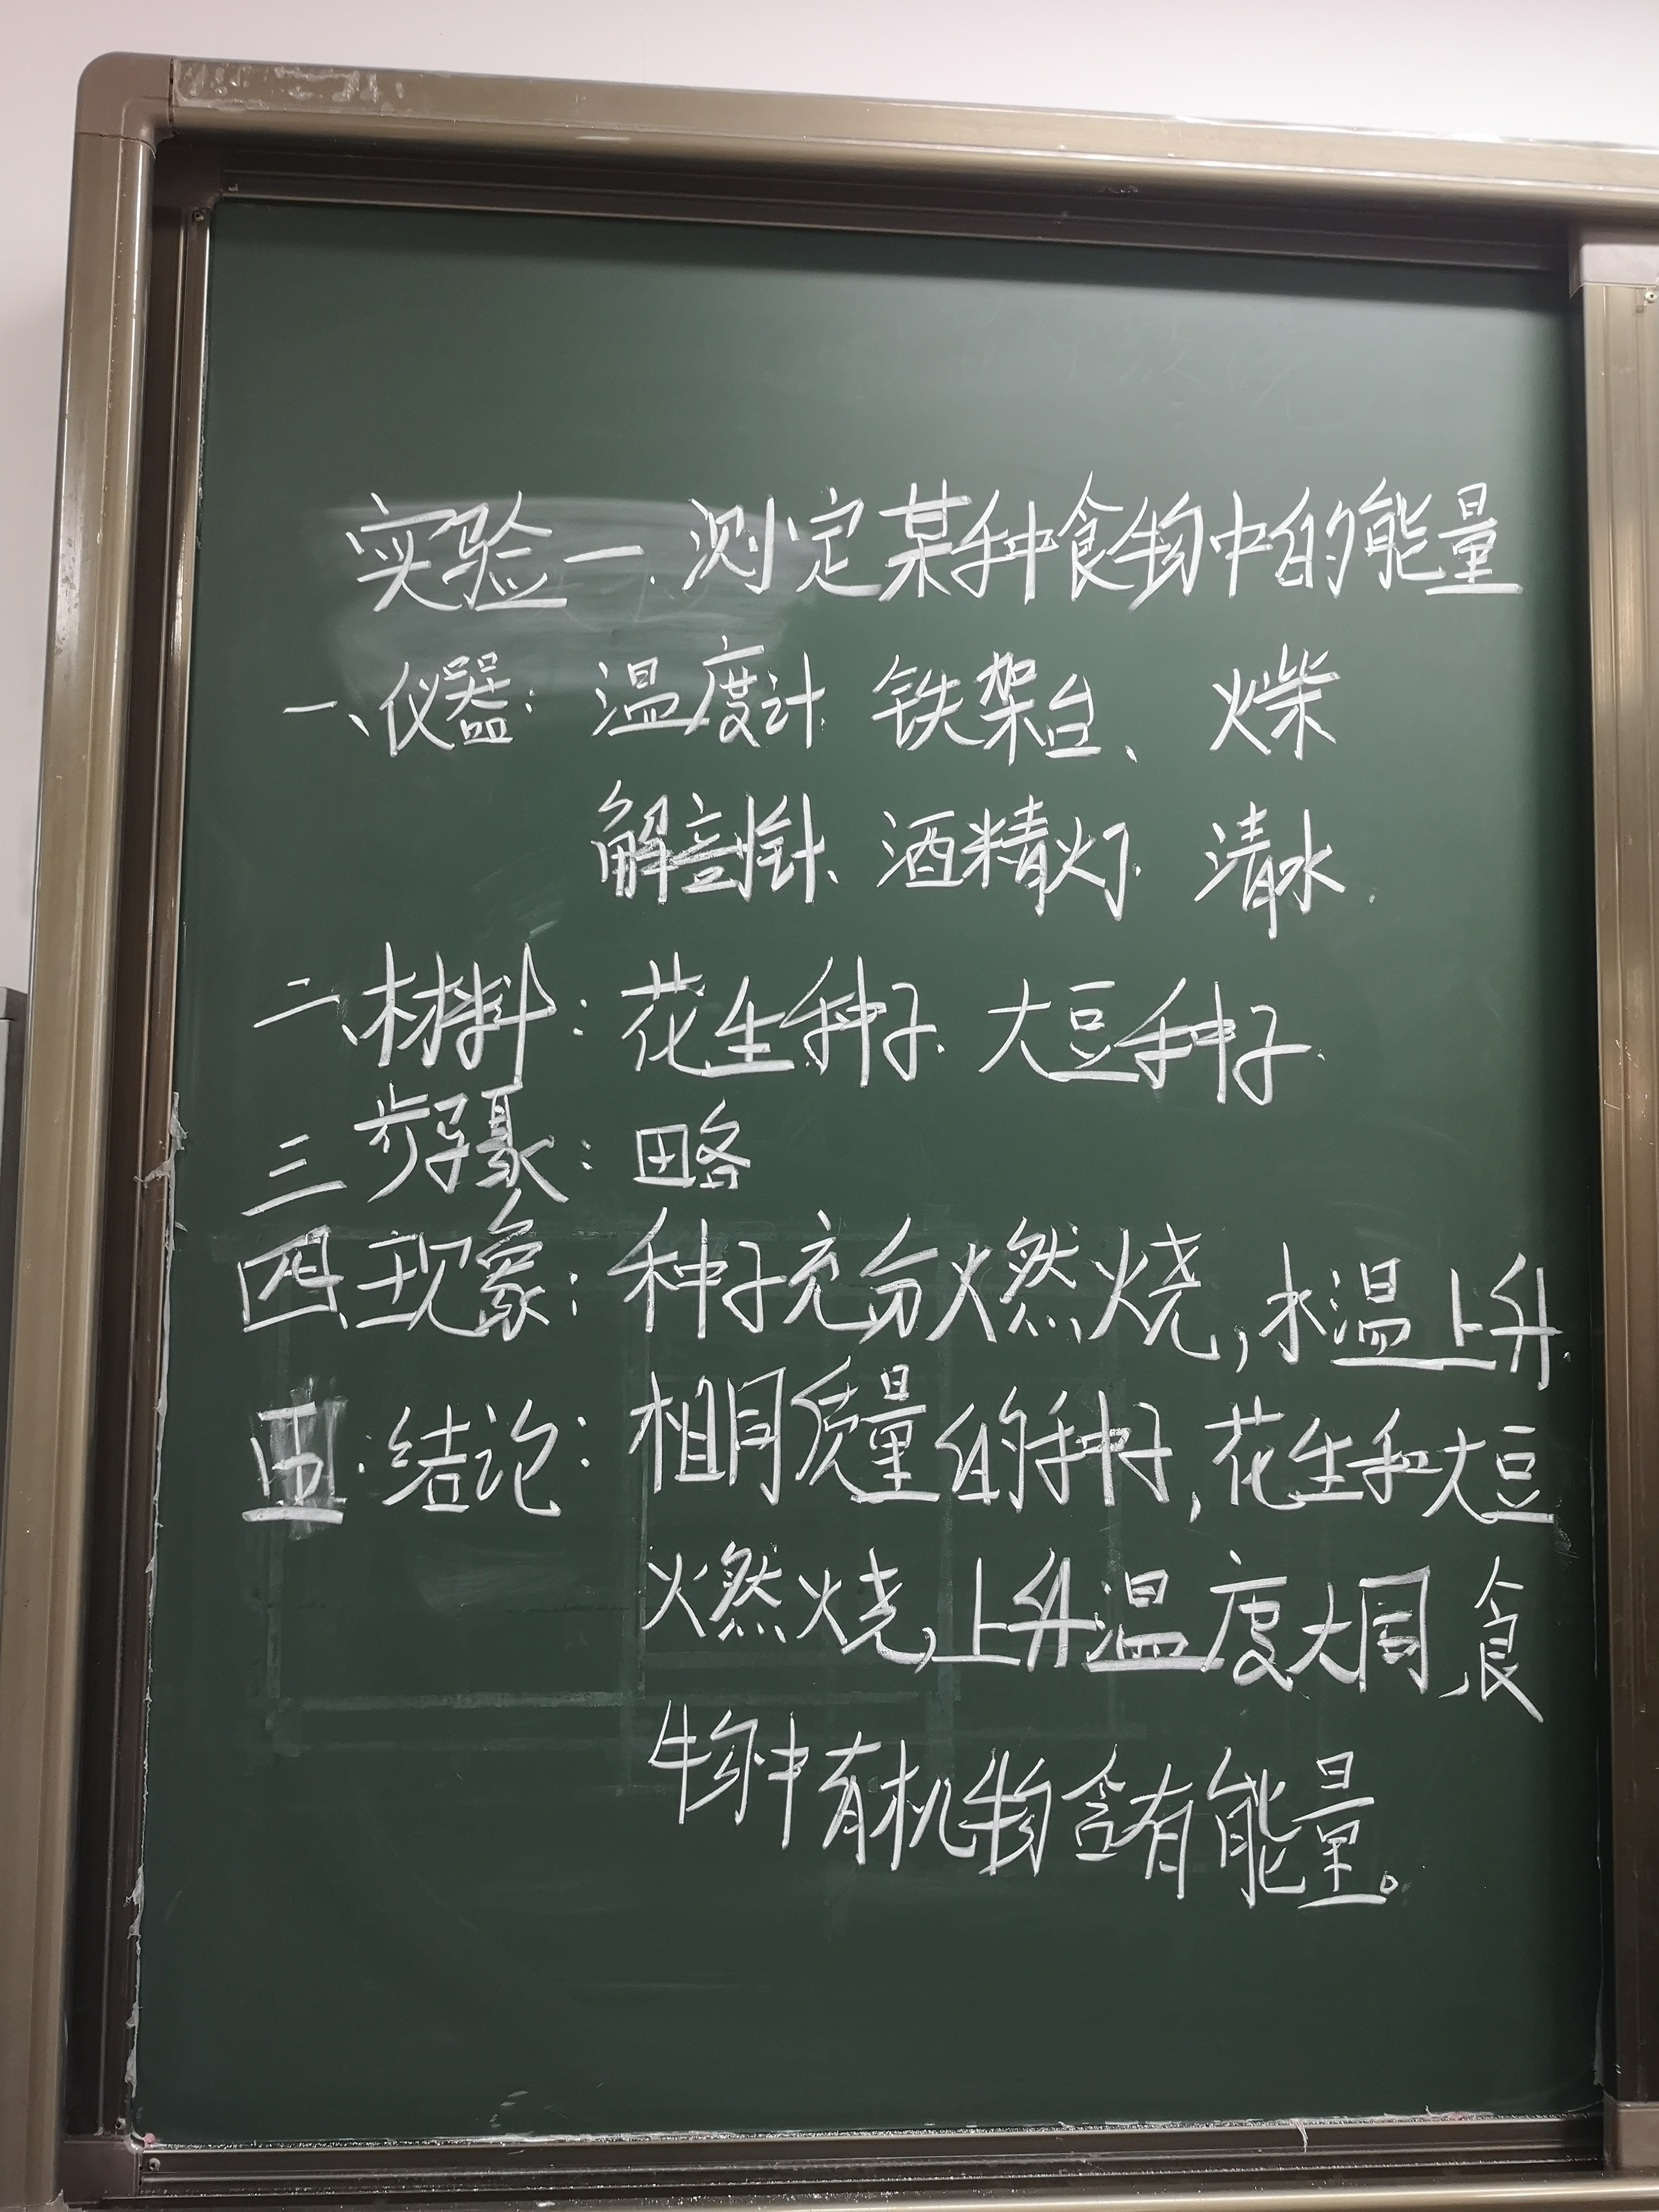 实验一.测定某种食物中的能量
一、仪器: 温度计. 铁架台、 火柴
解剖针、 酒精灯. 清水.
二、材料: 花生种子. 大豆种子.
三 步骤: 略
四、现象: 种子充分燃烧,水温上升.
五.结论: 相同质量的种子,花生和大豆
燃烧,上升温度大同,食
物中有机物含有能量。